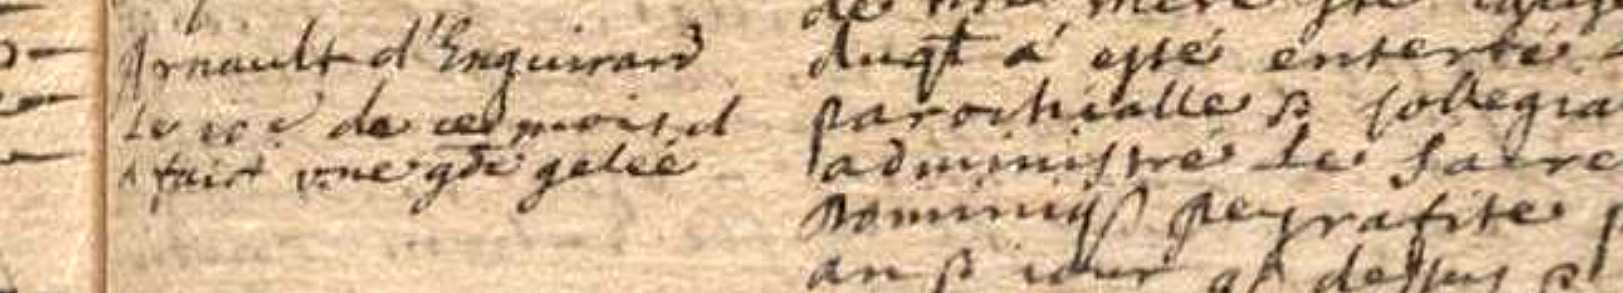 Arnault d'Enguirand
Le 10e de ce mois il
a faict une gde gelée
de nre mere ste
duqt a esté enterré
parochialle & collegia
administré le sacre
Dominiq peyrafite
an & iour q dessus &